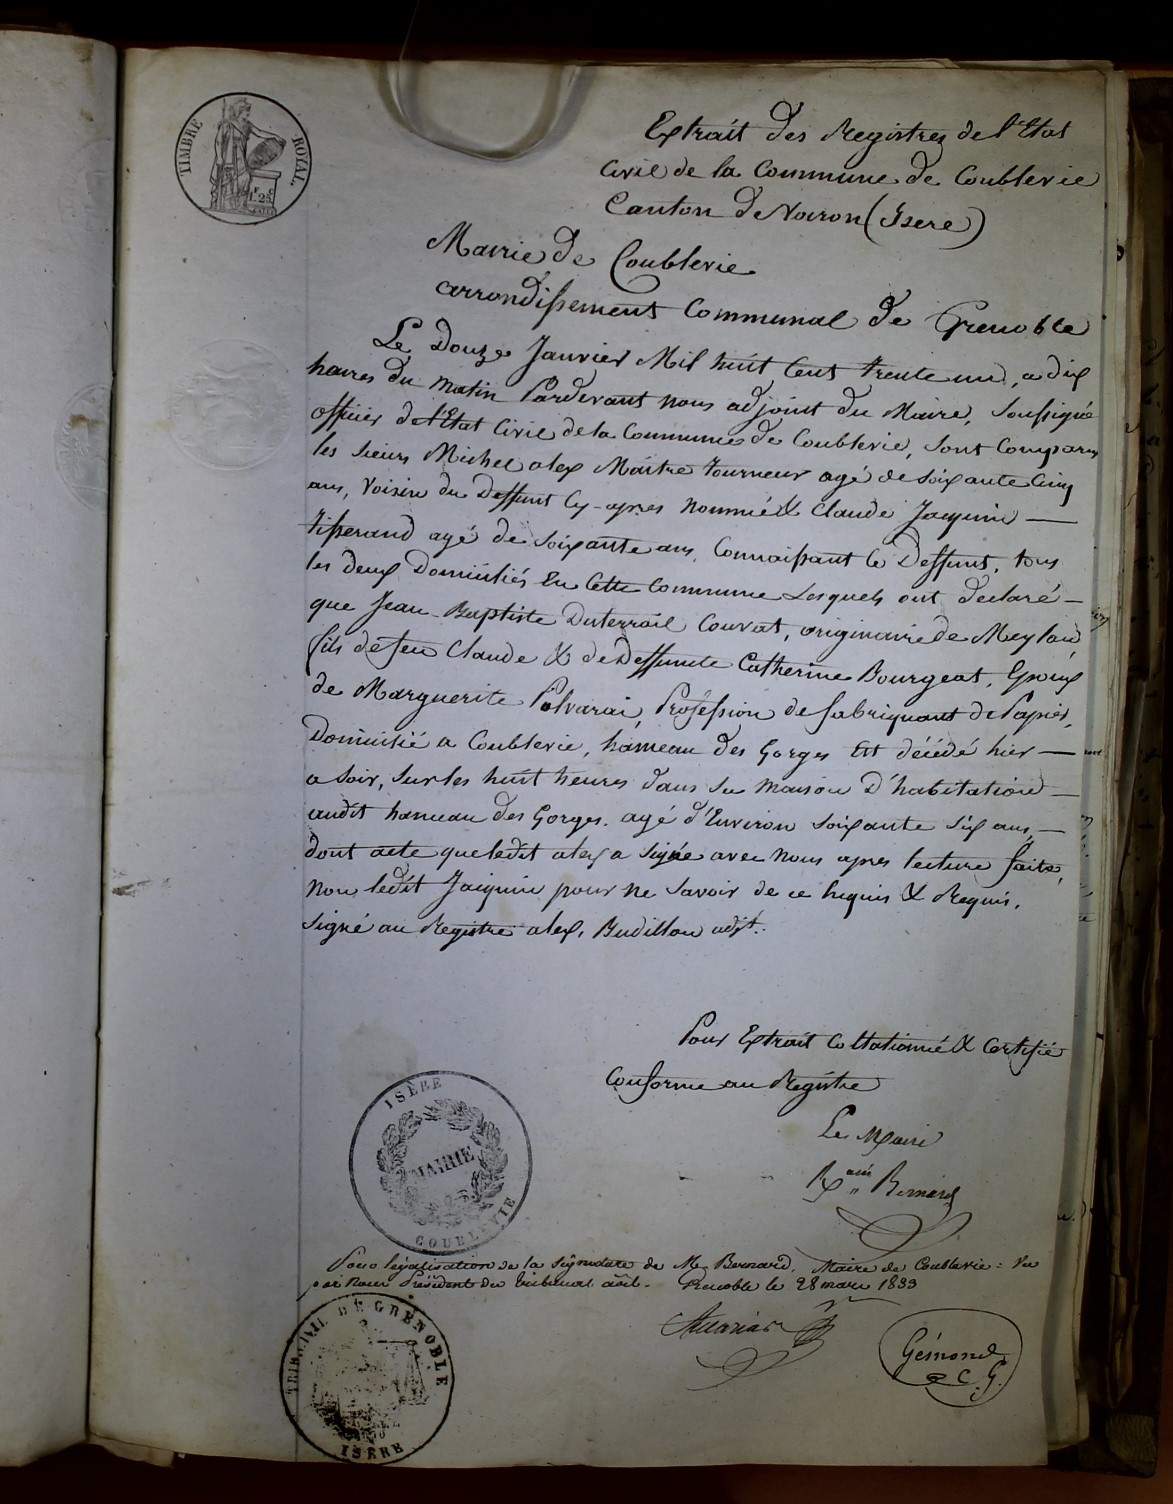 TIMBRE ROYAL.
Extrait des Registres de l'Etat
Civil de la Commune de Coublevie
Canton de Voiron (Isere)
Mairie de Coublevie
arrondissement Communal de Grenoble
Le Douze Janvier Mil huit Cent trente un, a dix
heures du matin Pardevant nous adjoint du Maire, Soussigné
officier de l'Etat Civil de la Commune de Coublevie, sont Comparus
les sieurs Michel alex Maitre tourneur agé de soixante Cinq
ans, Voisin du Deffunt Cy-apres nommé & Claude Jacquin
tisserand agé de soixante ans, Connaissant le Deffunt, tous
les deux Domiciliés En Cette Commune Lesquels ont declaré
que Jean Baptiste Duterrail Couvat, originaire de Meylan,
fils de feu Claude & de Deffunte Catherine Bourgeat, Epoux
de Marguerite Polvarai, Profession de fabriquant de Papier,
Domicilié a Coublevie, hameau des Gorges Est décédé hier
a soir, sur les huit heures dans sa maison d'habitation
audit hameau des Gorges. agé d'Environ soixante six ans,
dont acte que ledit alex a signé avec nous apres lecture faite,
Non ledit Jacquin pour ne savoir de ce Enquis & Requis.
signé au Registre alex, Budillon adjt.
Pour Extrait Collationné & Certifié
Conforme au Registre
Le Maire
Bernard
ISÈRE
MAIRIE
COUBLEVIE
Pour légalisation de la signature de Mr Bernard, Maire de Coublevie: Vu
par nous Président du tribunal civil. Grenoble le 28 mars 1833
Gémond
TRIBUNAL CIVIL DE GRENOBLE
ISÈRE